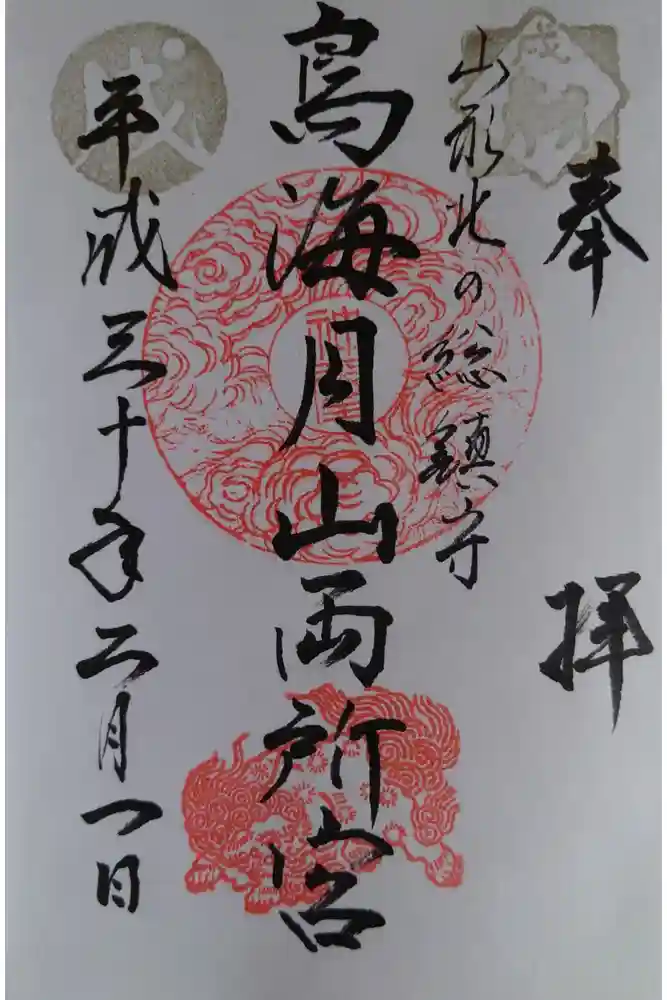 奉拝
山形北の総鎮守
鳥海月山両所宮
平成三十年二月一日